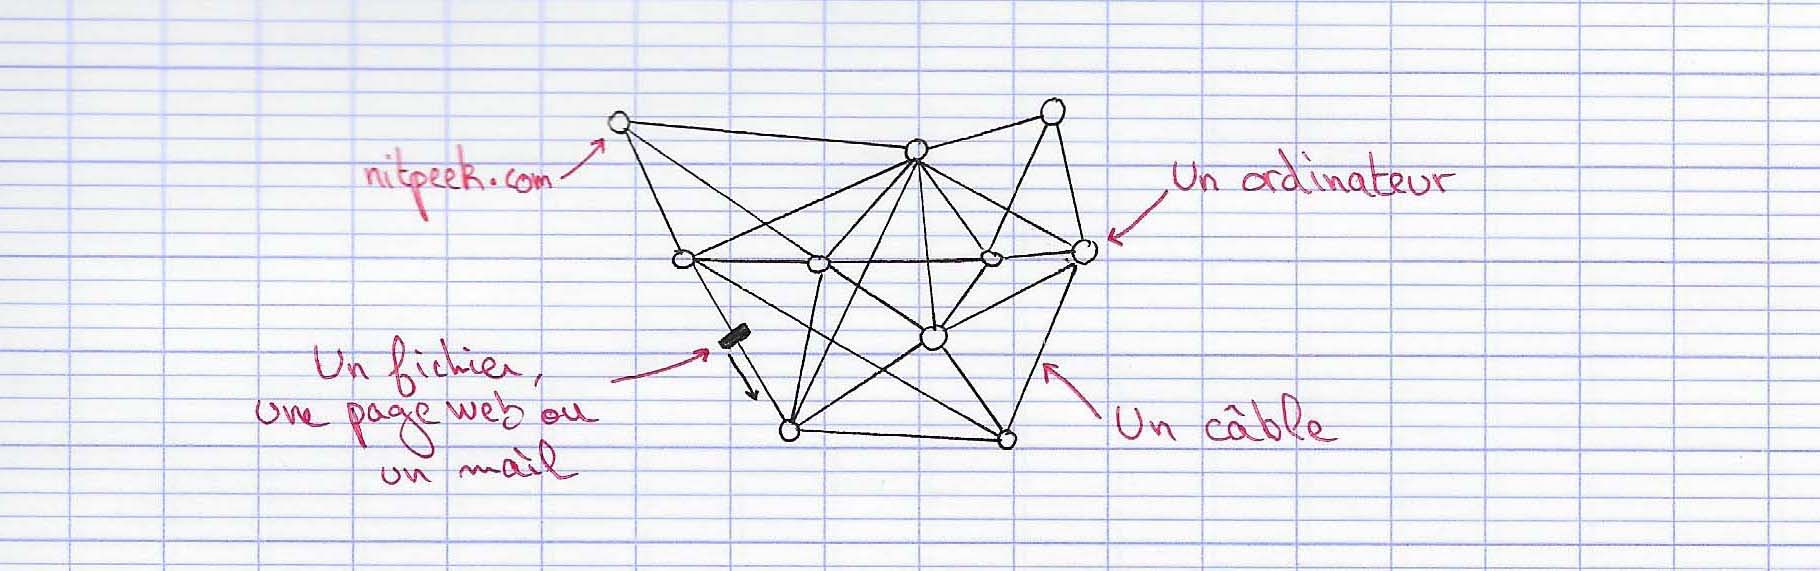 nitpeek.com
Un ordinateur
Un fichier,
une page web ou
un mail
Un câble